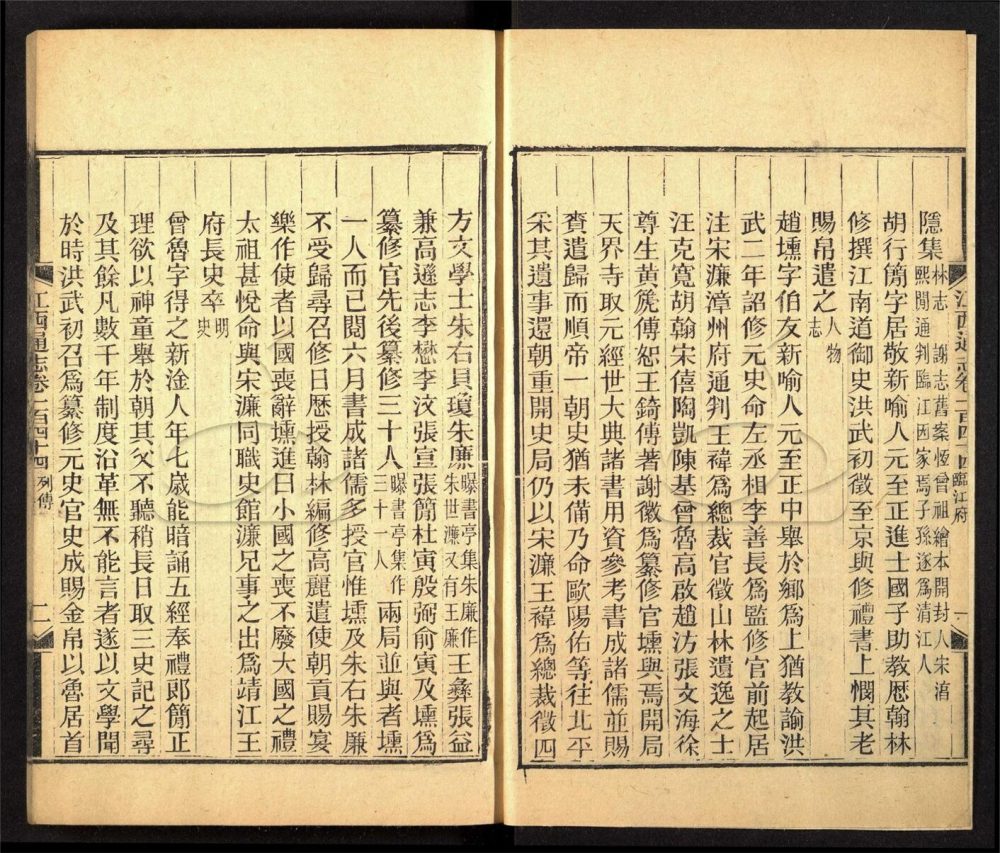 江西通志卷一百四十四臨江府 一
隱集林志 謝志舊案恆曾祖繪本開封人宋
熙間通判臨江因家焉子孫遂爲清江人
胡行簡字居敬新喻人元至正進士國子助教歷翰林
修撰江南道御史洪武初徵至京與修禮書上憫其老
賜帛遣之人物
志
趙壎字伯友新喻人元至正中舉於鄉爲上猶教諭洪
武二年詔修元史命左丞相李善長爲監修官前起居
注宋濂漳州府通判王褘爲總裁官徵山林遺逸之士
汪克寬胡翰宋僖陶凱陳基曾魯高啟趙汸張文海徐
尊生黃篪傅恕王錡傅著謝徽爲纂修官壎與焉開局
天界寺取元經世大典諸書用資參考書成諸儒並賜
賚遣歸而順帝一朝史猶未備乃命歐陽佑等往北平
采其遺事還朝重開史局仍以宋濂王褘爲總裁徵四
方文學士朱右貝瓊朱廉曝書亭集朱廉作
朱世濂又有王廉王彝張益
兼高遜志李懋李汶張宣張簡杜寅殷弼俞寅及壎爲
纂修官先後纂修三十人曝書亭集作
三十一人兩局並與者壎
一人而已閱六月書成諸儒多授官惟壎及朱右朱廉
不受歸尋召修日歷授翰林編修高麗遣使朝貢賜宴
樂作使者以國喪辭壎進曰小國之喪不廢大國之禮
太祖甚悅命與宋濂同職史館濂兄事之出爲靖江王
府長史卒明
史
曾魯字得之新淦人年七歲能暗誦五經奉禮郎簡正
理欲以神童舉於朝其父不聽稍長日取三史記之尋
及其餘凡數千年制度沿革無不能言者遂以文學聞
於時洪武初召爲纂修元史官史成賜金帛以魯居首
江西通志卷一百四十四列傳 二